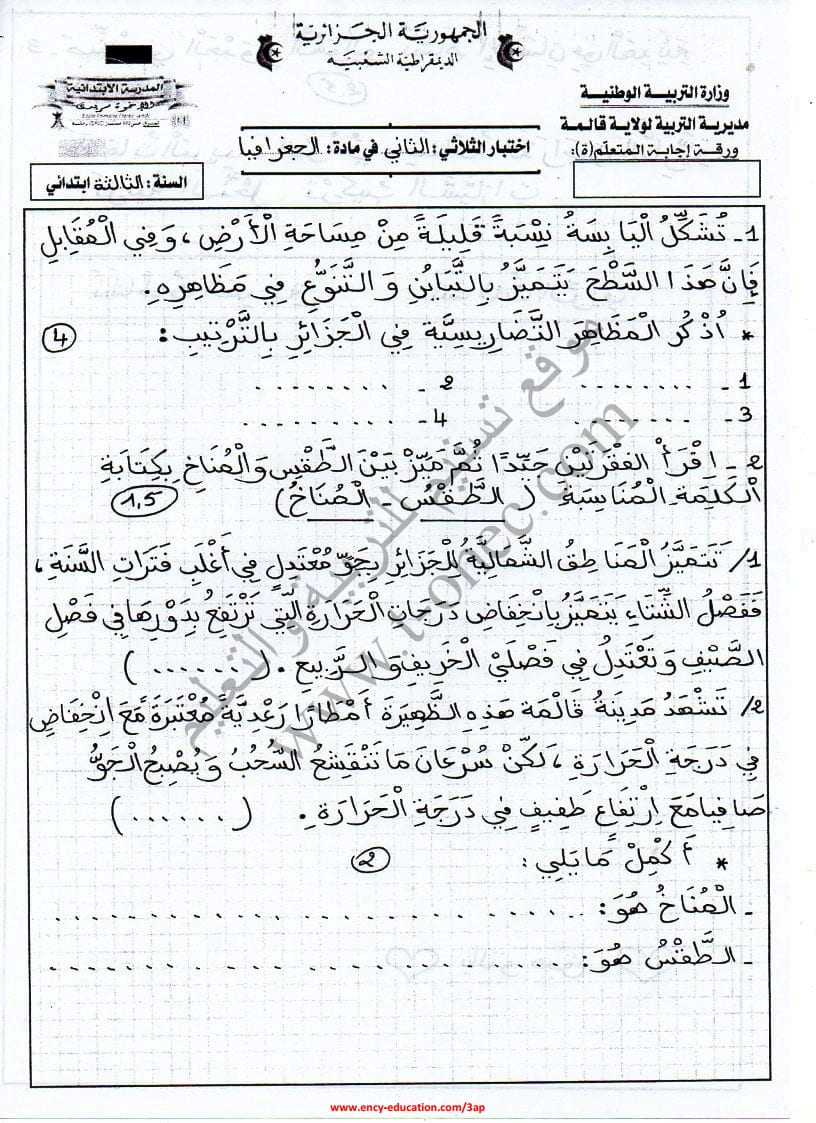 الجمهورية الجزائرية
الديمقراطية الشعبية
وزارة التربية الوطنية
المدرسة الابتدائية
مديرية التربية لولاية قالمة
اختبار الثلاثي: الثاني في مادة: الجغرافيا
ورقة إجابة المتعلم (ة):
السنة: الثالثة ابتدائي
1- تُشَكِّلُ الْيَابِسَةُ نِسْبَةً قَلِيلَةً مِنْ مِسَاحَةِ الْأَرْضِ، وَفِي الْمُقَابِلِ
فَإِنَّ هَذَا السَّطْحَ يَتَمَيَّزُ بِالتَّبَايُنِ وَالتَّنَوُّعِ فِي مَظَاهِرِهِ.
* أُذْكُر الْمَظَاهِرَ التَّضَارِيسِيَّة فِي الْجَزَائِرِ بِالتَّرْتِيبِ: 4
1- ......... 2- .........
3- ......... 4- .........
2- اِقْرَأْ الْفِقْرَتَيْنِ جَيِّدًا ثُمَّ مَيِّزْ بَيْنَ الطَّقْسِ وَالْمُنَاخِ بِكِتَابَةِ
الْكَلِمَةِ الْمُنَاسِبَةِ (الطَّقْسُ - الْمُنَاخُ) 1,5
1/ تَتَمَيَّزُ الْمَنَاطِقُ الشَّمَالِيَّةُ لِلْجَزَائِرِ بِجَوٍّ مُعْتَدِلٍ فِي أَغْلَبِ فَتَرَاتِ السَّنَةِ،
فَفَصْلُ الشِّتَاءِ يَتَمَيَّزُ بِانْخِفَاضِ دَرَجَاتِ الْحَرَارَةِ الَّتِي تَرْتَفِعُ بِدَوْرِهَا فِي فَصْلِ
الصَّيْفِ وَتَعْتَدِلُ فِي فَصْلَيْ الْخَرِيفِ وَ الرَّبِيعِ. (......)
2/ تَشْهَدُ مَدِينَةُ قَالَمَة هَذِهِ الظَّهِيرَةَ أَمْطَارًا رَعْدِيَّةً مُعْتَبَرَةً مَعَ اِنْخِفَاضٍ
فِي دَرَجَةِ الْحَرَارَةِ، لَكِنْ سُرْعَانَ مَا تَنْقَشِعُ السُّحُبُ وَيُصْبِحُ الْجَوُّ
صَافِيا مَعَ اِرْتِفَاعٍ طَفِيفٍ فِي دَرَجَةِ الْحَرَارَةِ. (......)
* أَكْمِلْ مَا يَلِي: 2
- الْمُنَاخُ هُوَ: ..............................
- الطَّقْسُ هُوَ: ..............................
موقع تسنيم للتربية والتعليم
www.t-onec.com
www.ency-education.com/3ap